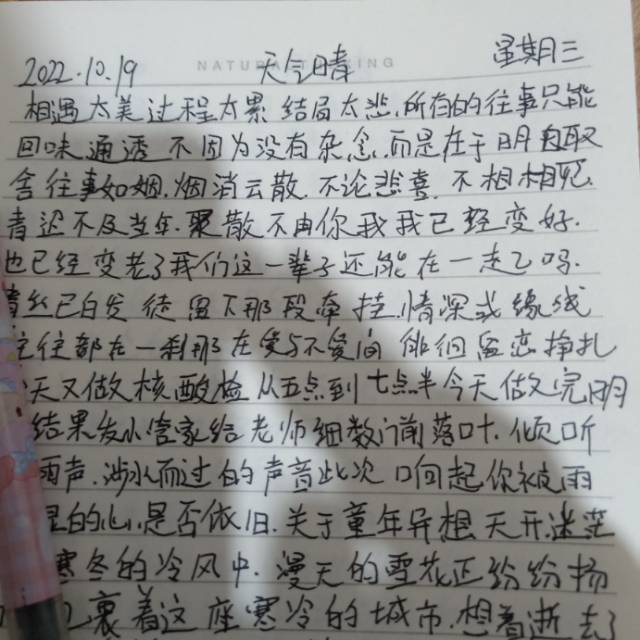 NATURA ING
2022.10.19 天气晴 星期三
相遇太美过程太累 结局太悲,所有的往事只能
回味 通透 不因为没有杂念,而是在于明白取
舍 往事如烟.烟消云散 不论悲喜.不相相见
青迟不及当年.聚散不由你我我已经变好.
也已经变老了我们这一辈子还能在一走乙吗.
青丝已白发 徒留下那段牵挂,情深或缘浅
往往都在一刹那 在爱与不爱间 徘徊留恋挣扎
天又做核酸检 从五点到七点半今天做又完明
结果发小管家给老师细数门前落叶.倾听
雨声.涉水而过的声音此次 口向起你被雨
的心.是否依旧.关于童年异想天开迷茫
寒冬的冷风中.漫天的雪花正纷纷扬
裹着这座寒冷的城市.想着逝去了